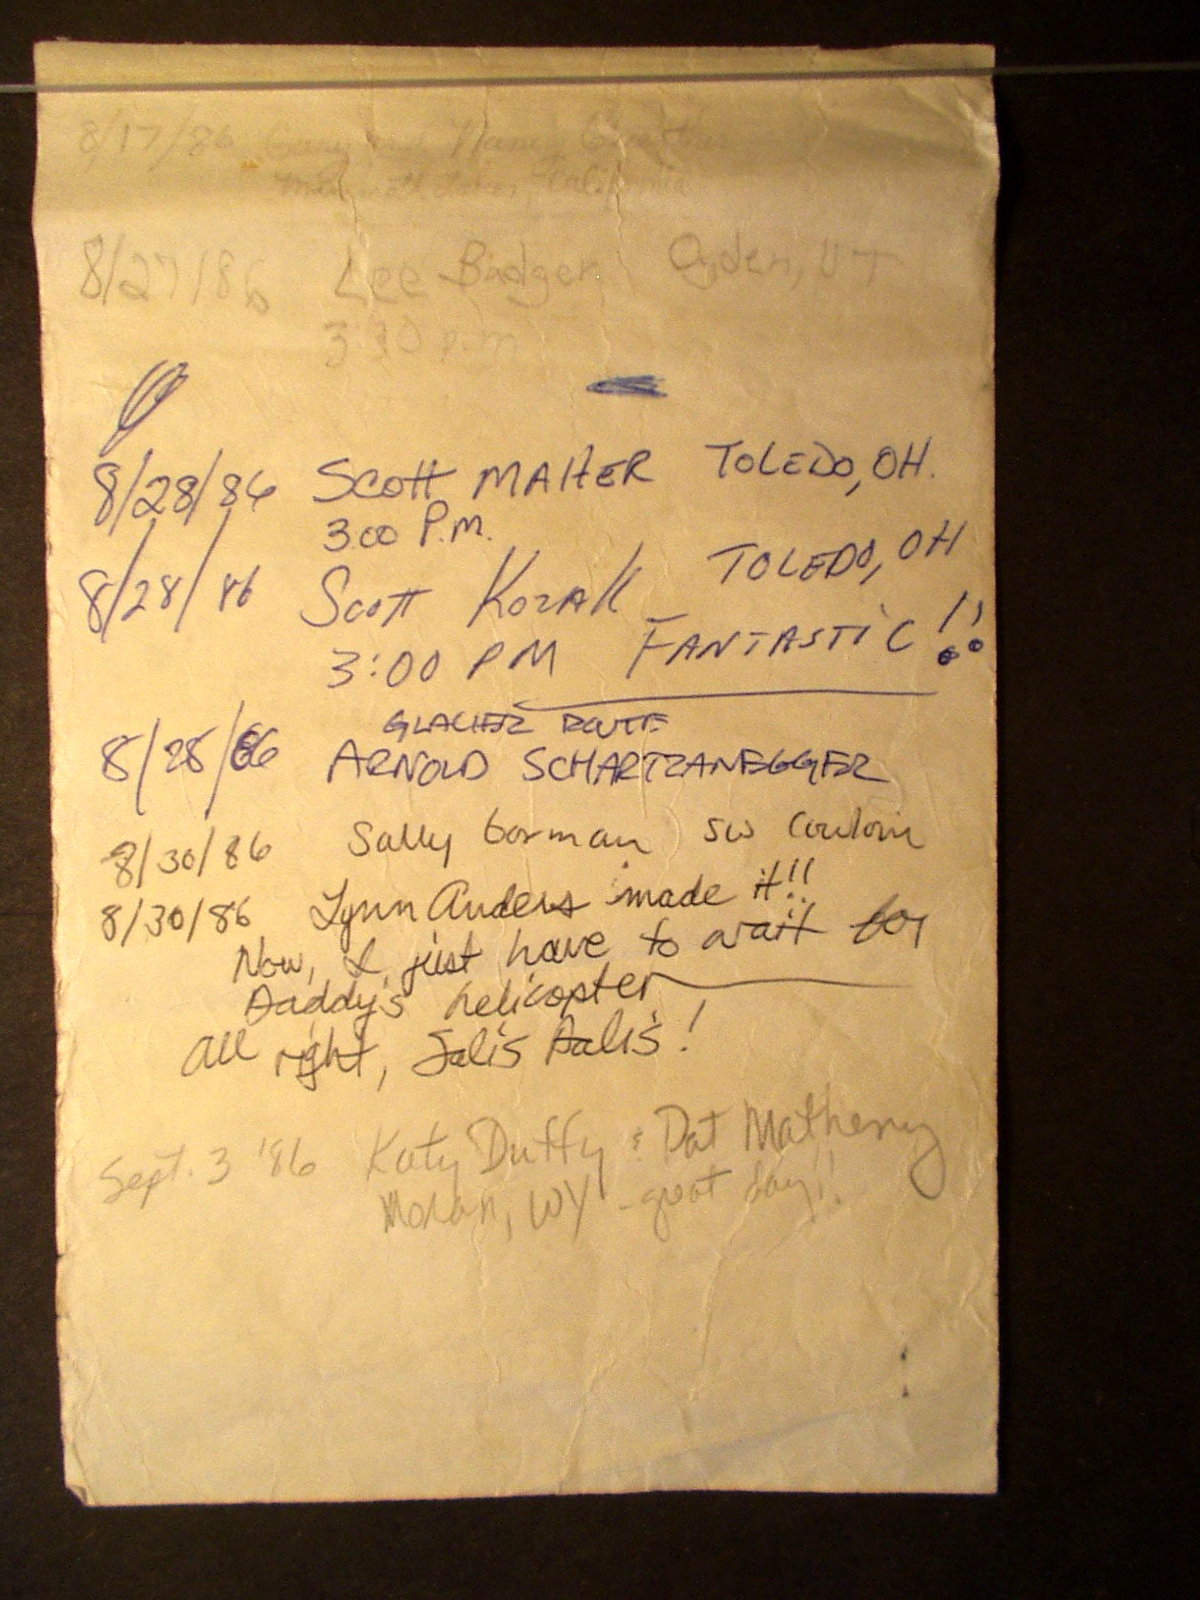 8/17/86 Gary and Nancy
Mammoth Lakes, California
8/27/86 Lee Badger Ogden, UT
3:30 p.m
8/28/86 SCOTT MAHER TOLEDO, OH.
3:00 P.M.
8/28/86 SCOTT KOZAK TOLEDO, OH
3:00 PM FANTASTIC!!
GLACIER ROUTE
8/28/86 ARNOLD SCHARTZANEGGER
8/30/86 Sally Gorman SW Couloir
8/30/86 Lynn Anders made it!!
Now, I just have to wait for
Daddy's helicopter
All right, Salis Dalis!
Sept. 3 '86 Katy Duffy & Pat Matheny
Moran, WY - great day!!